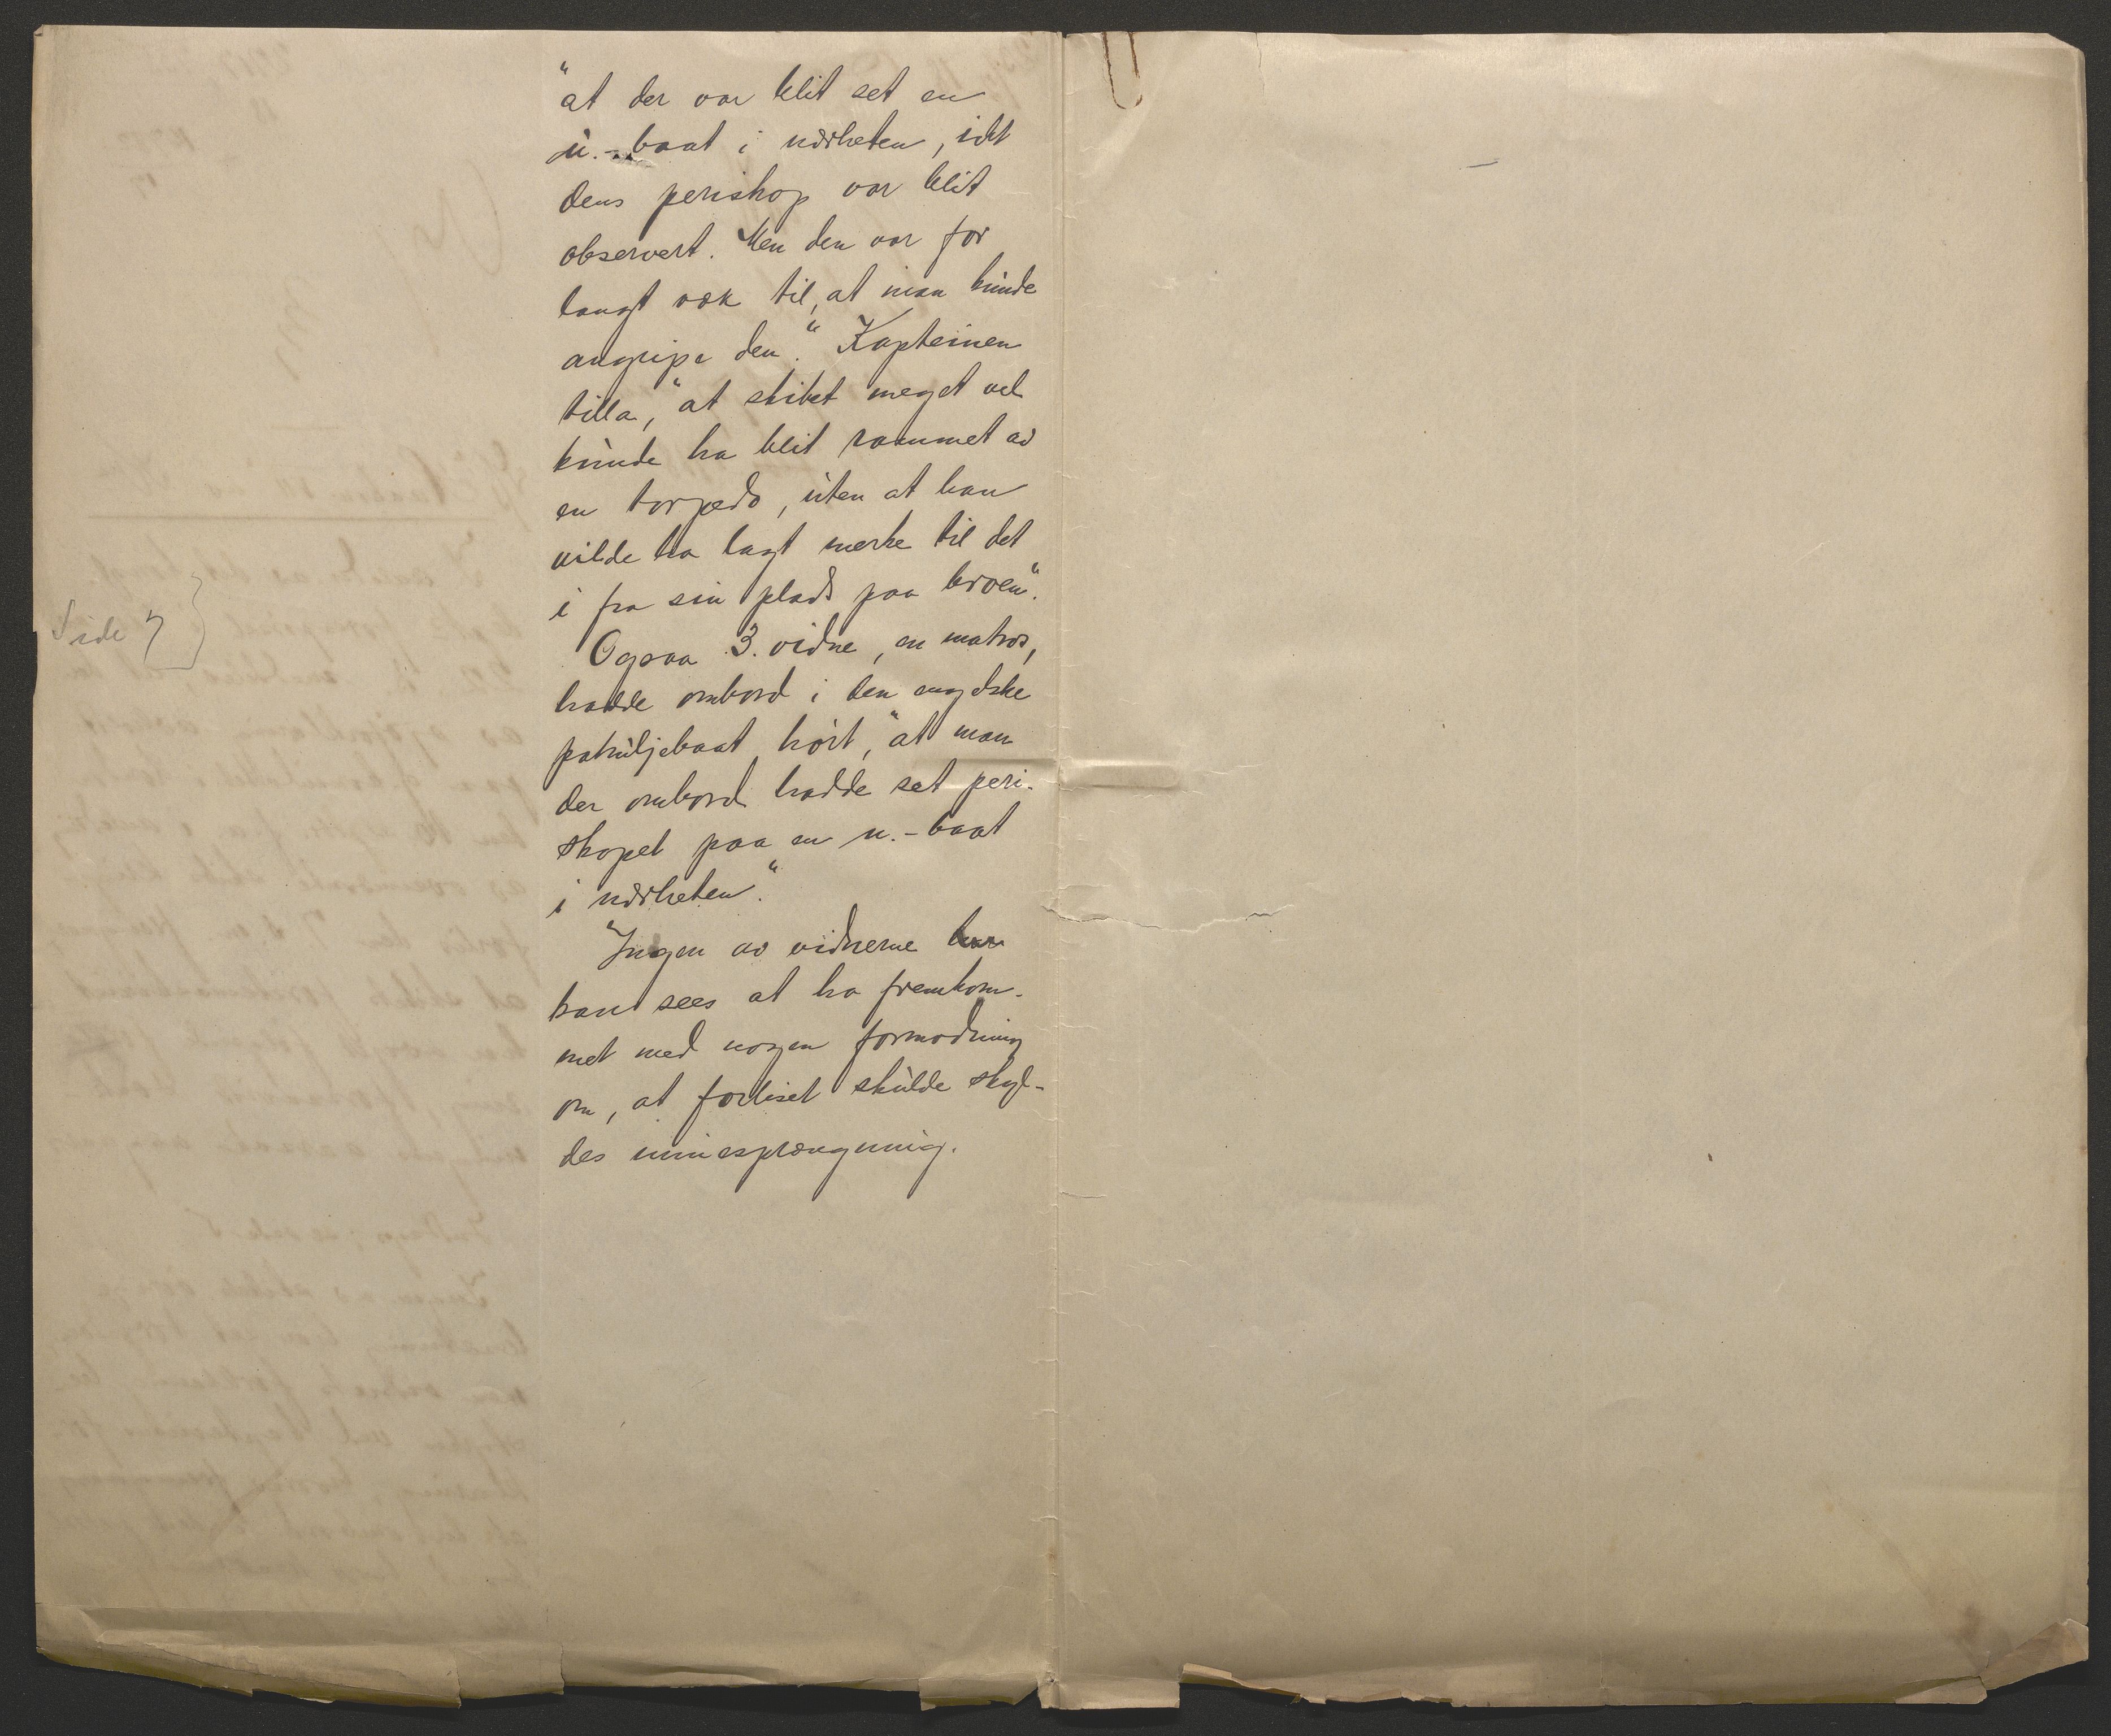 "at der var blit set en
u.-baat i nærheten, idet
dens periskop var blit
observert. Men den var for
langt væk til, at man kunde
angripe den." Kapteinen
tilla, "at skibet meget vel
kunde ha blit rammet av
en torpedo, uten at han
vilde ha lagt merke til det
i fra sin plads paa broen".
Ogsaa 3. vidne, en matros,
hadde ombord i den engelske
patruljebaat hørt, "at man
der ombord hadde set peri-
skopet paa en u.-baat
i nærheten."
Side 7}
"Ingen av vidnerne
kan sees at ha fremkom-
met med nogen formodning
om, at forliset skulde skyl-
des minesprængning.